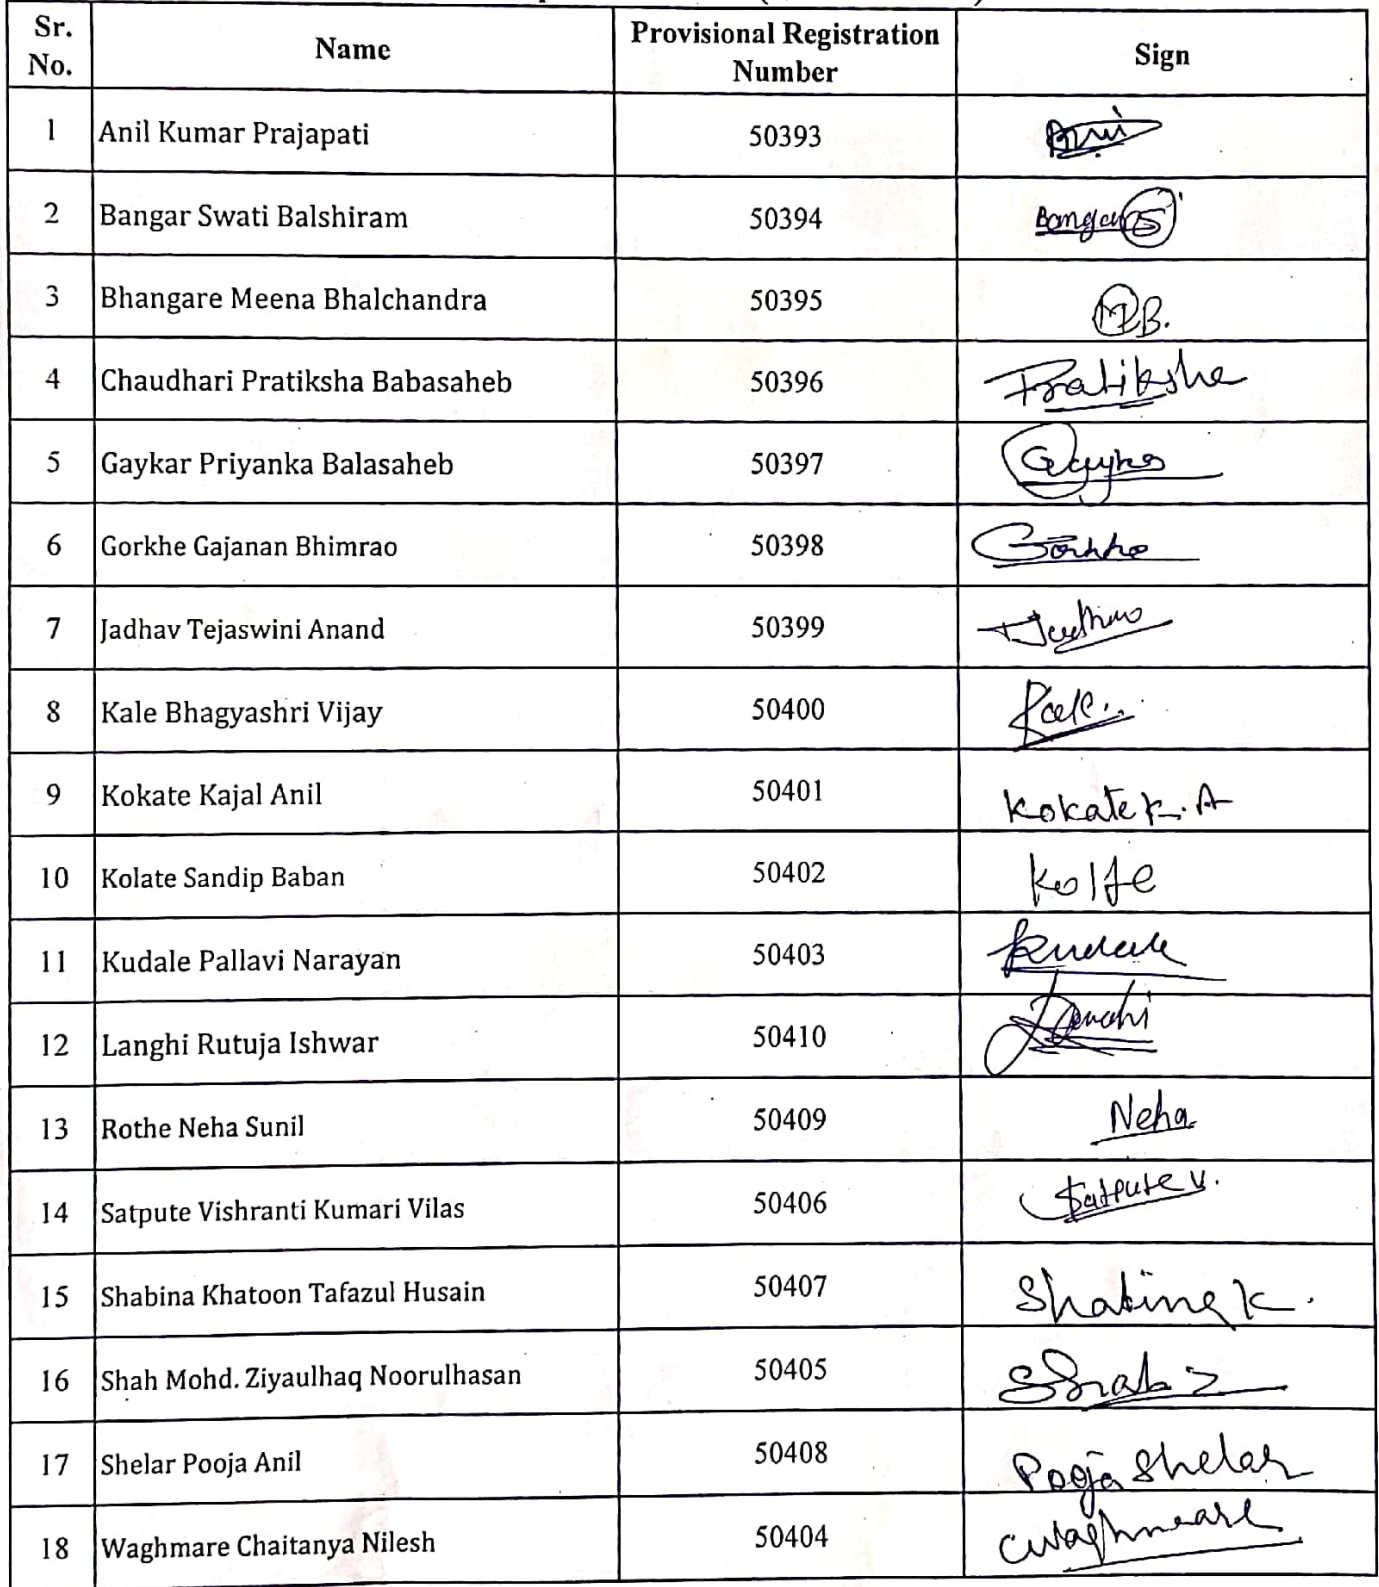 Sr. No. Name Provisional Registration Number Sign
1 Anil Kumar Prajapati 50393
2 Bangar Swati Balshiram 50394 Bangar S
3 Bhangare Meena Bhalchandra 50395
4 Chaudhari Pratiksha Babasaheb 50396 Pratiksha
5 Gaykar Priyanka Balasaheb 50397
6 Gorkhe Gajanan Bhimrao 50398 Gorkhe
7 Jadhav Tejaswini Anand 50399
8 Kale Bhagyashri Vijay 50400 Kale
9 Kokate Kajal Anil 50401 Kokate K. A
10 Kolate Sandip Baban 50402 Kolte
11 Kudale Pallavi Narayan 50403 Kudale
12 Langhi Rutuja Ishwar 50410
13 Rothe Neha Sunil 50409 Neha
14 Satpute Vishranti Kumari Vilas 50406 Satpute V.
15 Shabina Khatoon Tafazul Husain 50407 Shabina K.
16 Shah Mohd. Ziyaulhaq Noorulhasan 50405 Shah Z
17 Shelar Pooja Anil 50408 Pooja Shelar
18 Waghmare Chaitanya Nilesh 50404 CWaghmare